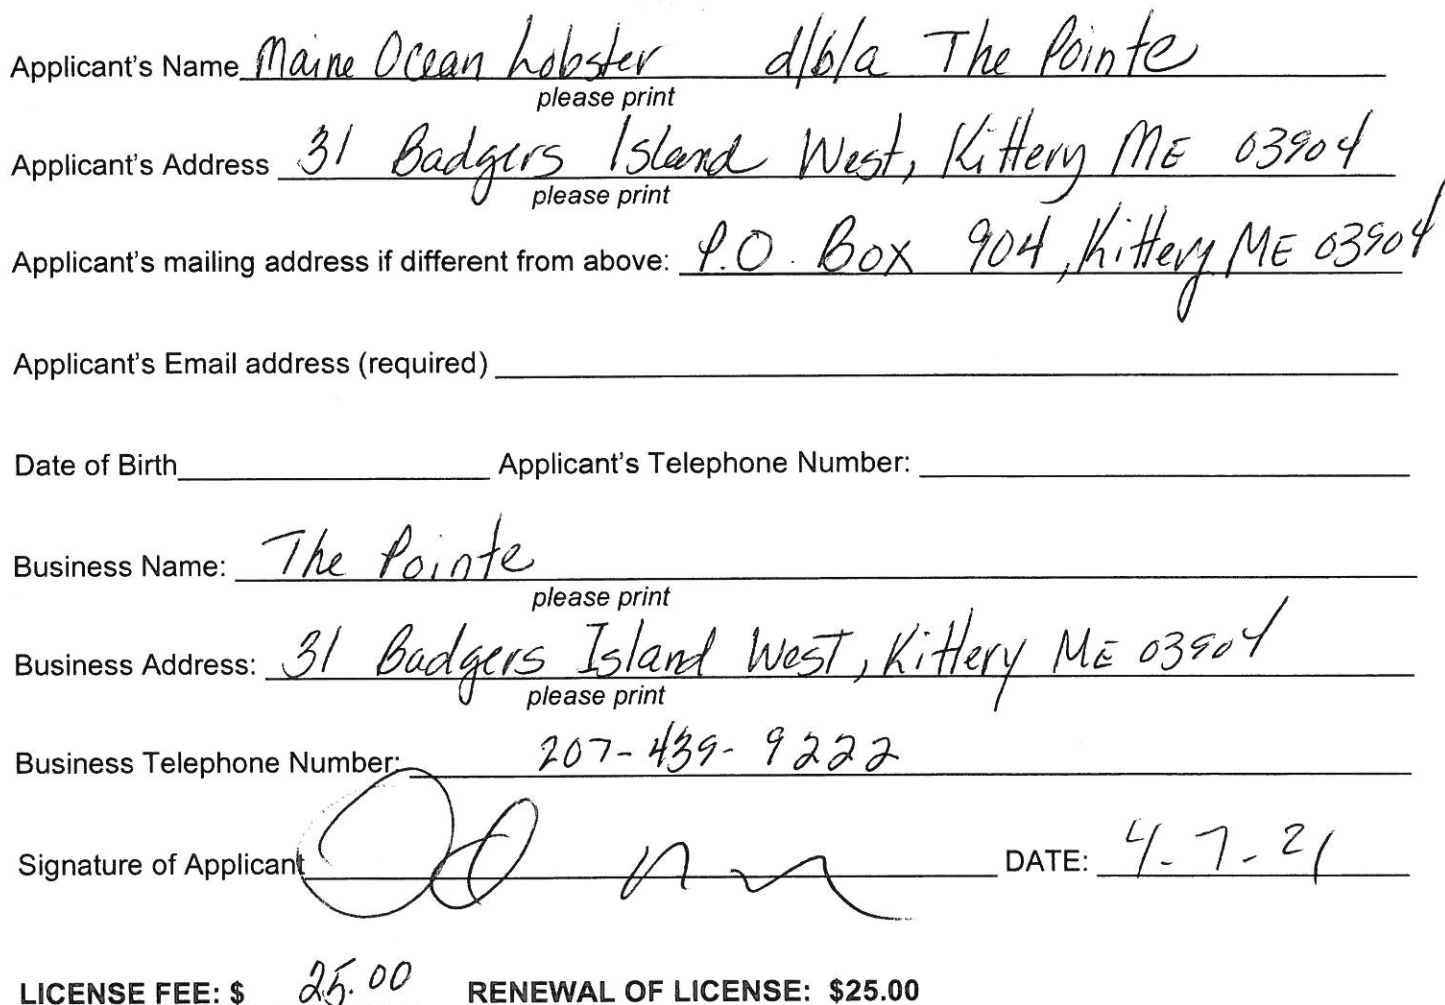 Applicant's Name Maine Ocean Lobster d/b/a The Pointe
please print
Applicant's Address 31 Badgers Island West, Kittery ME 03904
please print
Applicant's mailing address if different from above: P.O. Box 904, Kittery ME 03904
Applicant's Email address (required)
Date of Birth Applicant's Telephone Number:
Business Name: The Pointe
please print
Business Address: 31 Badgers Island West, Kittery ME 03904
please print
Business Telephone Number: 207-439-9222
Signature of Applicant DATE: 4-7-21
LICENSE FEE: $ 25.00 RENEWAL OF LICENSE: $25.00